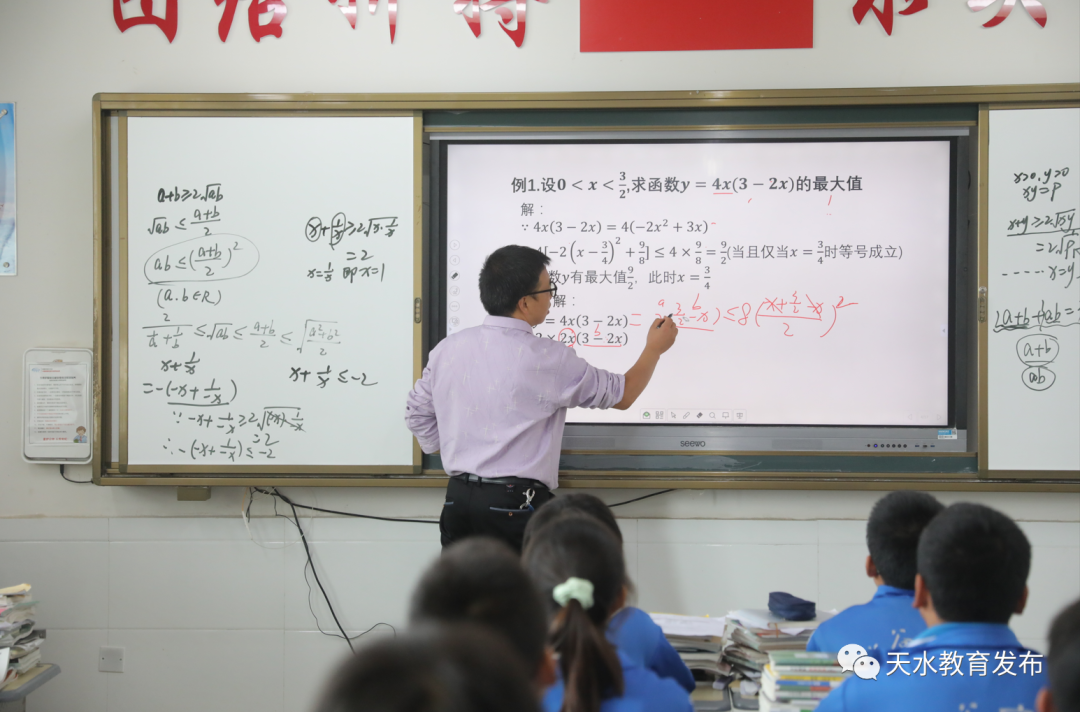 团结
求实
a+b≥2√ab
√ab ≤ (a+b)/2
ab ≤ ((a+b)/2)²
(a.b∈R)
2/(1/a + 1/b) ≤ √ab ≤ (a+b)/2 ≤ √((a²+b²)/2)
x+1/x
=-(-x+1/-x)
∵ -x+1/-x ≥2√(-x)·1/-x
=2
∴ -(-x+1/-x) ≤ -2
x+1/x ≥2√x·1/x
=2
x=1/x 即x=1
x+1/x ≤ -2
例1.设0 < x < 3/2,求函数y = 4x(3 − 2x)的最大值
解：
∵ 4x(3 − 2x) = 4(−2x² + 3x)
4[−2(x − 3/4)² + 9/8] ≤ 4 × 9/8 = 9/2(当且仅当x = 3/4时等号成立)
数y有最大值9/2，此时x = 3/4
解：
= 4x(3 − 2x)
2x(3 − 2x)
a b
b
≤ 8((x+3/2-x)/2)²
seewo
x>0, y>0
xy=P
x+y≥2√xy
=2√P
x=y
a+b
ab
天水教育发布